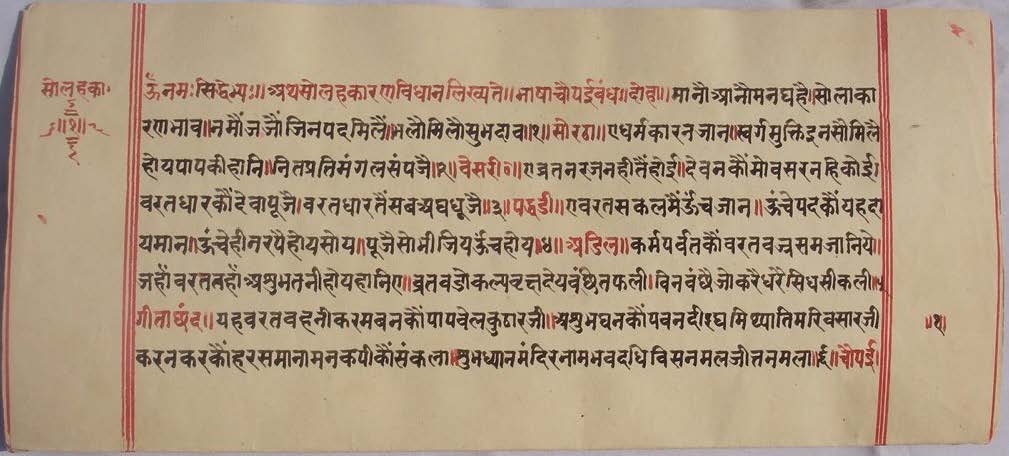 सोलहका॰
॥१॥
ॐनमःसिद्धेभ्यः॥अथसोलहकारणविधानलिख्यते॥भाषाचौपईबंध॥दोहा॥मानौआनौमनघहै॥सोलाका
रणभाव॥नमौंजजौंजिनपदमिलैं॥भलौमिलौसुभदाव॥१॥सोरठा॥एधर्मकारनजान॥स्वर्गमुक्तिइनसौमिलै
होयपापकीहानि॥नितप्रतिमंगलसंपजै॥२॥वेसरी॰॥एव्रतनरजनहीतैंहोई॥देवनकौंमोवसरनहिकोई।
वरतधारकौंदेवापूजै॥वरतधारतैंसबअघधूजै॥३॥पद्धडी॥एवरतसकलमैंऊंचजान॥ऊंचेपदकौंयहदा
यमान॥ऊंचेहीतरपैहोयसोय॥पूजैसोभीजियऊंचहोय॥४॥अडिल॥कर्मपर्वतकौंवरतवज्रसमजानिये॥
जहाँवरततहाँअशुभतनीहोयहानिए॥व्रतवडोकल्पवृक्षदेयवंछितफली॥विनवंछैजोकरैधरैसिधसीकली॥५
गीताछंद॥यहवरतवह्नीकरमबनकौंपापवेलकुठारजी॥अशुभघनकौंपवनदीरघमिथ्यातिमरिवसारजी
करनकरकौंहरसमानामनकपीकौंसंकला॥शुभध्यानमंदिरनामभवदधिविसनमलजीतनमला॥६॥चौपई।
॥१॥